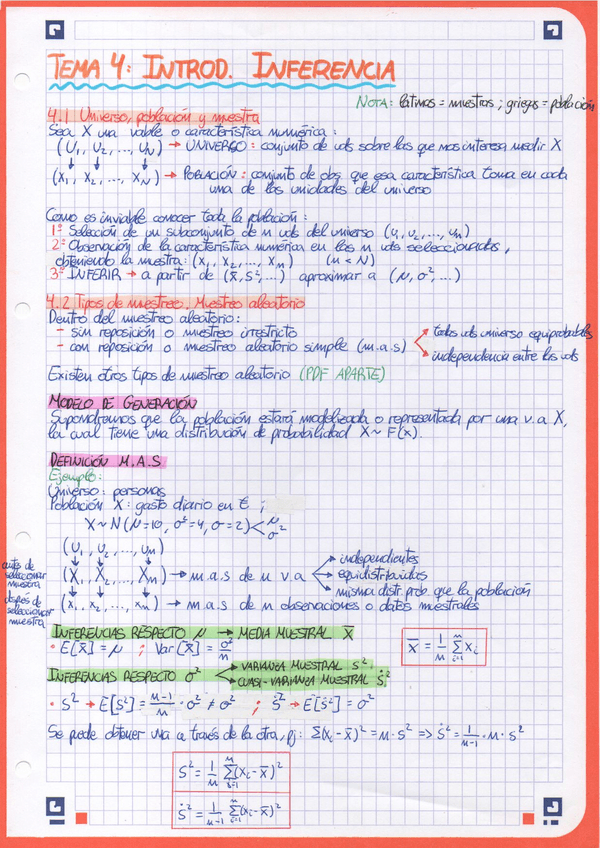 TEMA 4: INTROD. INFERENCIA
NOTA: latinas = muestras; griegas = población
4.1 Universo, población y muestra
Sea X una vable o característica numérica:
(U₁, U₂, ..., U_N) → UNIVERSO: conjunto de uds sobre las que nos interesa medir X
(X₁, X₂, ..., X_N) → POBLACIÓN: conjunto de obs que esa característica toma en cada
una de las unidades del universo
Como es inviable conocer toda la población:
1º Selección de un subconjunto de n uds del universo (u₁, u₂, ..., uₙ)
2º Observación de la característica numérica en las n uds seleccionadas,
obteniendo la muestra: (x₁, x₂, ..., xₙ) (n < N)
3º INFERIR → a partir de (x̄, S², ...) aproximar a (μ, σ², ...)
4.2 Tipos de muestreo. Muestreo aleatorio
Dentro del muestreo aleatorio:
- sin reposición o muestreo irrestricto
- con reposición o muestreo aleatorio simple (m.a.s)
→ todas uds universo equiprobables
→ independencia entre las uds
Existen otros tipos de muestreo aleatorio (PDF APARTE)
MODELO DE GENERACIÓN
Supondremos que la población estará modelizada o representada por una v.a X,
la cual tiene una distribución de probabilidad X ~ F(x).
DEFINICIÓN M.A.S
Ejemplo:
Universo: personas
Población X: gasto diario en €;
X ~ N(μ=10, σ²=4, σ=2) < μ σ²
(U₁, U₂, ..., Uₙ)
antes de seleccionar muestra
(X₁, X₂, ..., Xₙ) → m.a.s de n v.a
→ independientes
→ equidistribuidas
→ misma distr. prob. que la población
después de seleccionar muestra
(x₁, x₂, ..., xₙ) → m.a.s de n observaciones o datos muestrales
INFERENCIAS RESPECTO μ → MEDIA MUESTRAL X̄
• E[X̄] = μ ; Var[X̄] = σ²/n
X̄ = 1/n Σᵢ₌₁ⁿ xᵢ
INFERENCIAS RESPECTO σ²
→ VARIANZA MUESTRAL S²
→ CUASI-VARIANZA MUESTRAL Ṡ²
• S² → E[S²] = n-1/n · σ² ≠ σ² ; Ṡ² → E[Ṡ²] = σ²
Se puede obtener una a través de la otra, pj: Σ(xᵢ-x̄)² = n·S² => Ṡ² = 1/n-1 · n · S²
S² = 1/n Σᵢ₌₁ⁿ (xᵢ - x̄)²
Ṡ² = 1/n-1 Σᵢ₌₁ⁿ (xᵢ - x̄)²